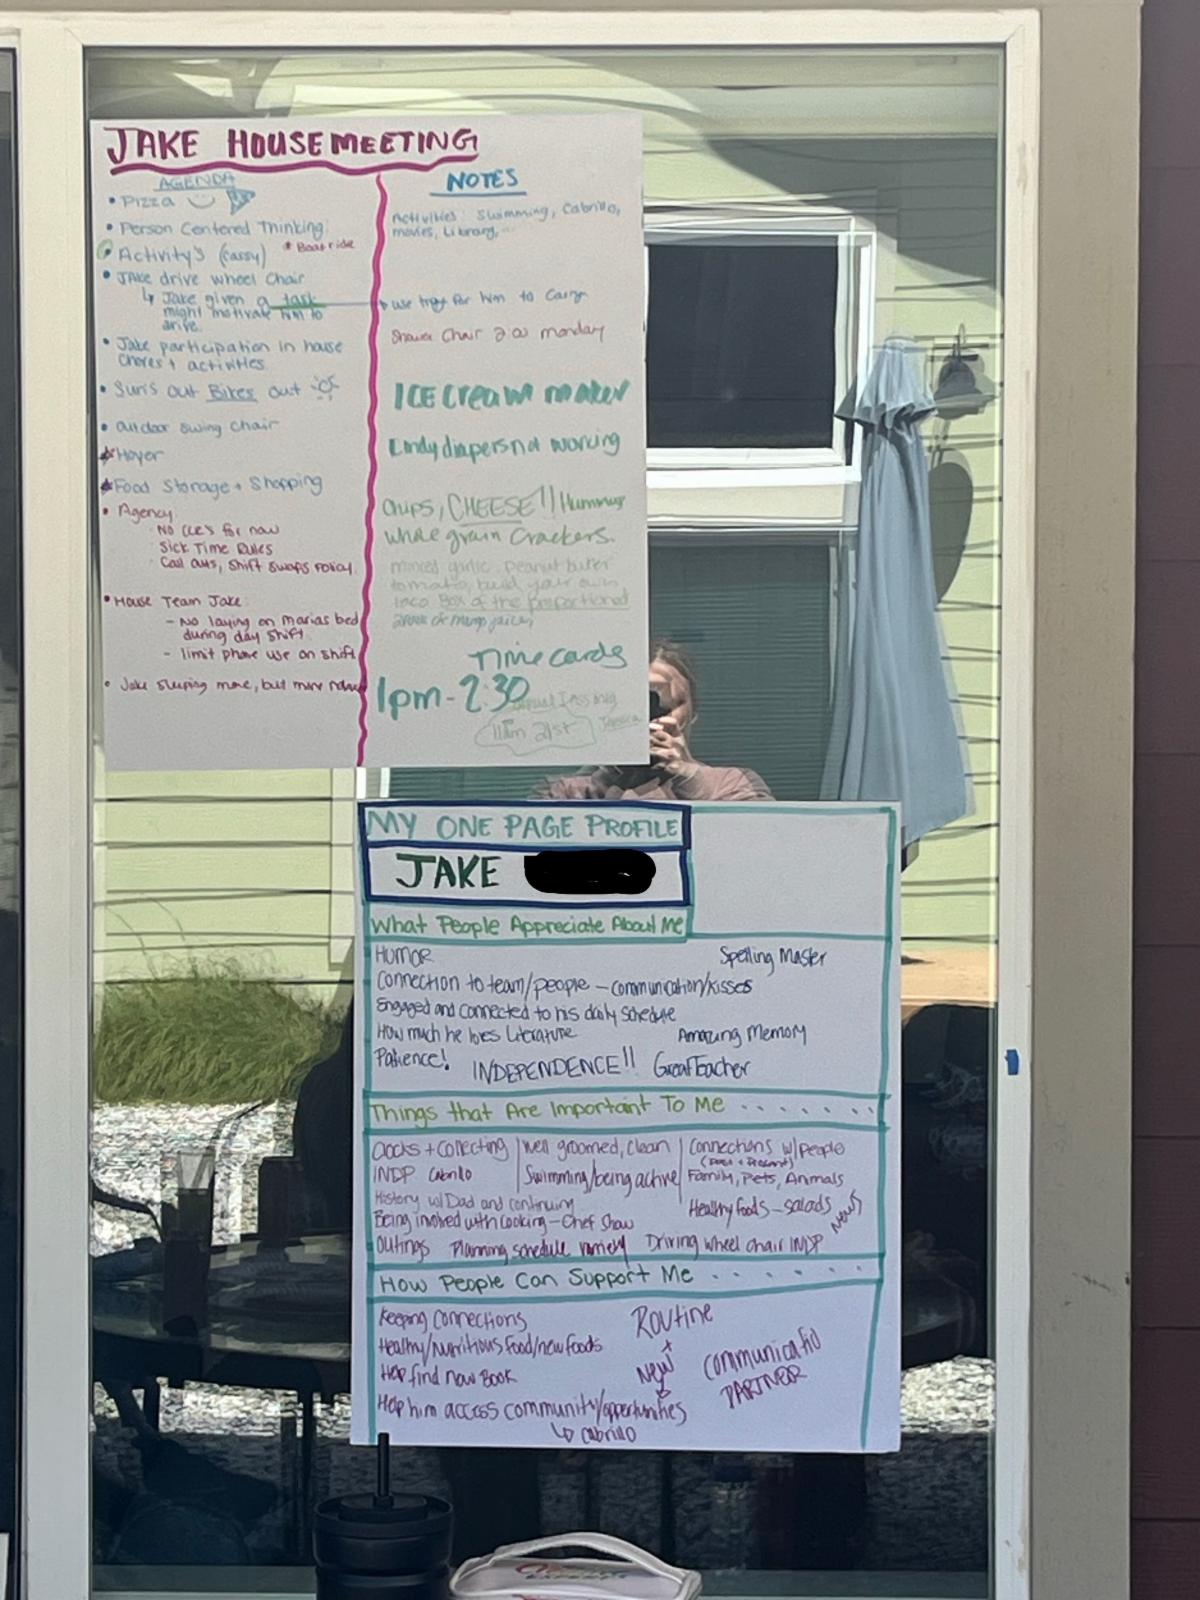 JAKE HOUSE MEETING
AGENDA
• Pizza
• Person Centered Thinking
• Activity's (Cassy) * Boat ride
• JAKE drive wheel Chair
↳ Jake given a task
might motivate him to
drive.
• Jake participation in house
Chores + activities
• Sun's out Bikes out
• outdoor swing chair
Hoyer
Food Storage + Shopping
• Agency:
Sick Time Rules
Call outs, Shift Swaps Policy
• House Team Jake:
- No laying on Marias bed
during day shift.
- limit phone use on shift
• Jake sleeping more, but more
NOTES
Activities: Swimming, Cabrillo,
movies, Library,
use tray for him to carry
Shower Chair 2:00 monday
ICE Cream maker
working
Chips, CHEESE!! Hummus
whole grain Crackers.
minced garlic, peanut butter
tomato, build your own
taco Box of the proportioned
Time cards
1pm - 2:30
21st Jessica
MY ONE PAGE PROFILE
JAKE
What People Appreciate About Me
HUMOR Spelling Master
Connection to team/people - communication/kisses
Engaged and connected to his daily schedule
How much he loves Literature Amazing Memory
Patience! INDEPENDENCE!! Great Teacher
Things that Are Important To Me
Clocks + Collecting Well groomed, clean Connections w/People
(Past + Present)
INDP Cabrillo Swimming/being active Family, Pets, Animals
History w/Dad and continuing Healthy foods - salads
New
Being involved with Cooking - Chef Show
Outings Planning schedule variety Driving wheel chair INDP
How People Can Support Me
Keeping connections Routine
Healthy/Nutritious food/new foods +
Help find new Book New Communicatio
PARTNER
Help him access community/opportunities
↳ Cabrillo